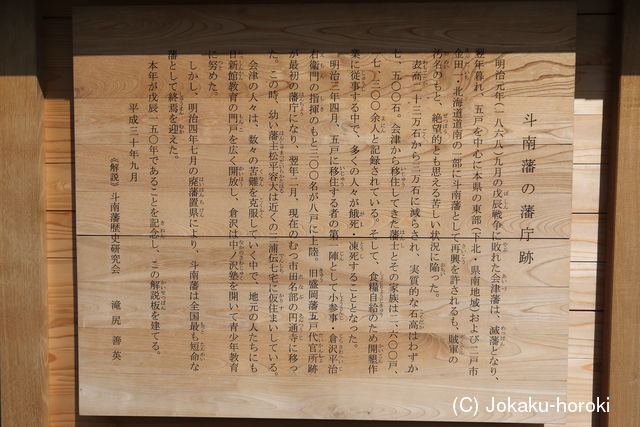 斗南藩の藩庁跡
明治元年(一八六八)九月の戊辰戦争に敗れた会津藩は、滅藩となり、
翌年暮れ、五戸を中心に本県の東部(下北・県南地域)および二戸市
金田一・北海道道南の一部に斗南藩として再興を許されるも、賊軍の
汚名のもと、絶望的とも思える苦しい状況に陥った。
表高二十三万石から三万石に減らされ、実質的な石高はわずか
七、五〇〇石。会津から移住してきた藩士とその家族は二、六〇〇戸、
一七、三〇〇余人と記録されている。そして、食糧自給のため開墾作
業に従事する中で、多くの人々が餓死・凍死することとなった。
明治三年四月、五戸に移住する者の第一陣として小参事・倉沢平治
右衛門の指揮のもと三〇〇名が八戸に上陸。旧盛岡藩五戸代官所跡
が最初の藩庁になり、翌年二月、現在のむつ市田名部の円通寺に移っ
た。この時、幼い藩主松平容大は近くの三浦伝七宅に仮住まいしている。
会津の人々は、数々の苦難を克服していく中で、地元の人たちにも
日新館教育の門戸を広く開放し、倉沢は中ノ沢塾を開いて青少年教育
に努めた。
しかし、明治四年七月の廃藩置県により、斗南藩は全国最も短命な
藩として終焉を迎えた。
本年が戊辰一五〇年であることを記念し、この解説板を建てる。
平成三十年九月
《解説》斗南藩歴史研究会 滝尻善英
(C) Jokaku-horoki